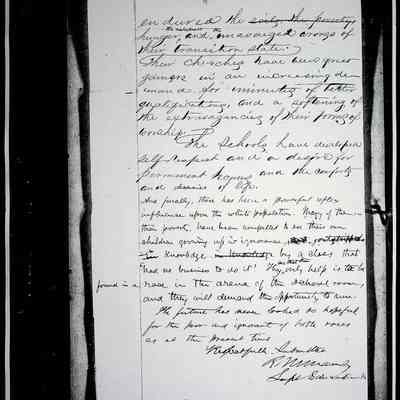 endured the ~~sixty, the poverty,~~
hunger, and the unavenged wrongs of
their transition state.
Their churches have been great
gainers in an increasing de-
mand for ministry of better
qualifications, and a softening of
the extravagancies of their forms of
worship.
The Schools have developed
self respect and a desire for
permanent homes and the comforts
and decencies of life.
And finally, there has been a powerful reflex
influence upon the white population. Many of them in
their poverty, have been compelled to see their own
children growing up in ignorance, and outstripped
in knowledge by a class that
"had no business to do it". They see that the only help is to be
found in a race in the arena of the school room,
and they will demand the opportunity to run.
The future has never looked so hopeful
for the poor and ignorant of both races
as at the present time
Respectfully Submitted
Supt Education